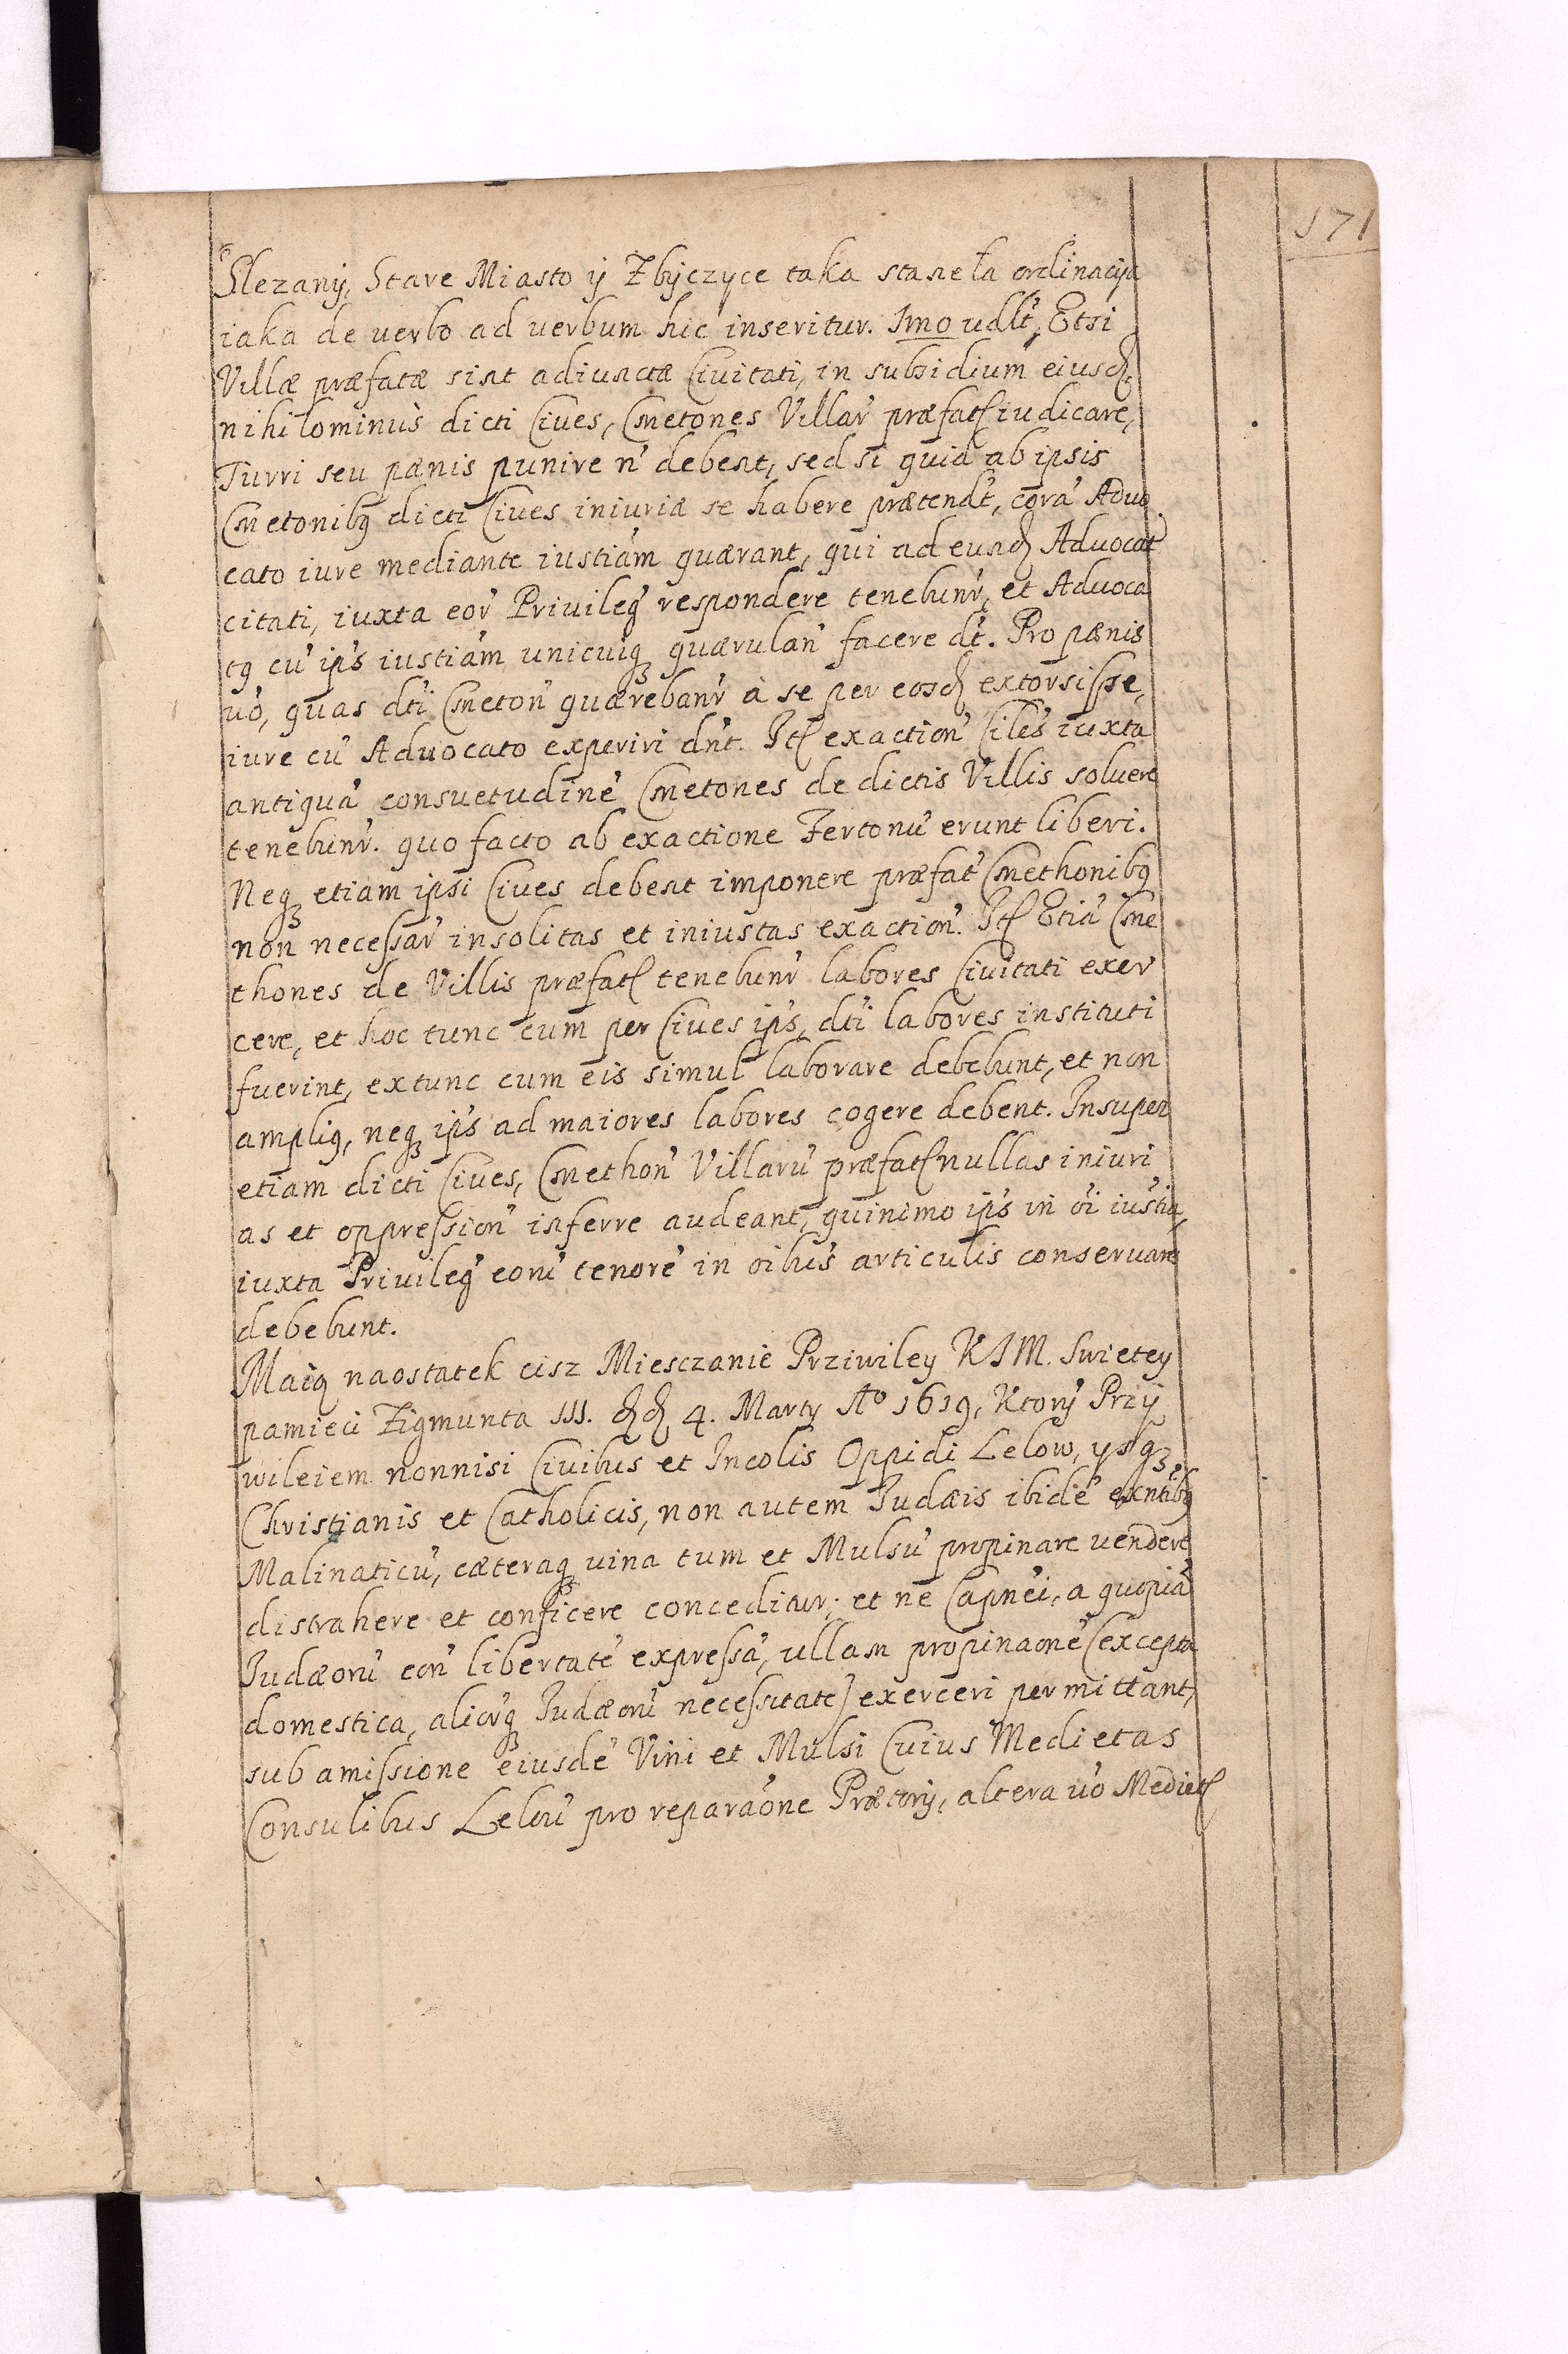 171
Slezany, Stare Miasto ÿ Zbÿczyce taka staneła ordinacija
iaka de verbo ad verbum hic inseritur. Imo vdlt, Etsi
Villæ præfatæ sint adiunctæ Civitati, in subsidium eiusd,
nihilominus dicti Cives, Cmetones Villar' præfat iudicare,
Turri seu pænis punire n' debent, sed si quid ab ipsis
Cmetonibq dicti Cives iniuriæ se habere prætendt, cora' Advo
cato iure mediante iustiam quærant, qui ad eund Advocat'
citati, iuxta eor' Privileg' respondere tenebunr', et Advoca
tq cu' ips' iustiam unicuiq quærulan' facere dt. Pro pænis
vo, quas dti Cmeton' quærebanr' à se per eosd extorsisse,
iure cu' Advocato experiri dnt. It exaction' Ciles iuxta
antiqua' consuetudine' Cmetones de dictis Villis solvere
tenebunr'. quo facto ab exactione Fertonu' erunt liberi.
Neq etiam ipsi Cives debent imponere præfat' Cmethonibq
non necessar' insolitas et iniustas exaction'. It Etia' Cme
thones de Villis præfat tenebunr' labores Civitati exer
cere, et hoc tunc cum per Cives ips', dti labores instituti
fuerint, extunc cum eis simul laborare debebunt, et non
ampliq, neq ips' ad maiores labores cogere debent. Insuper
etiam dicti Cives, Cmethon' Villaru' præfat nullas iniuri
as et oppression' inferre audeant, quinimo ips' in oi iustia,
iuxta Privileg' eoru' tenore' in oibus articulis conservare
debebunt.
Maią naostatek cisz Miesczanie Prziwiley KJM. Swietey
pamieci Zigmunta III. dd 4. Marty Ao 1619, Ktory Przÿ
wileiem nonnisi Civibus et Incolis Oppidi Lelow, ysq
Christianis et Catholicis, non autem Judæis ibide' exntibq
Malinaticu', cæteraq vina tum et Mulsu' propinare vendere
distrahere et conficere conceditur; et ne Capnei, a quopia'
Judæoru' eoru' libertate' expressa', ullam propinaone' (excepta
domestica, alicuq Judæoru' necessitate) exerceri permittant,
sub amissione eiusde' Vini et Mulsi Cuius Medietas
Consulibus Lelov' pro reparaone Prætorij, altera vo Mediet